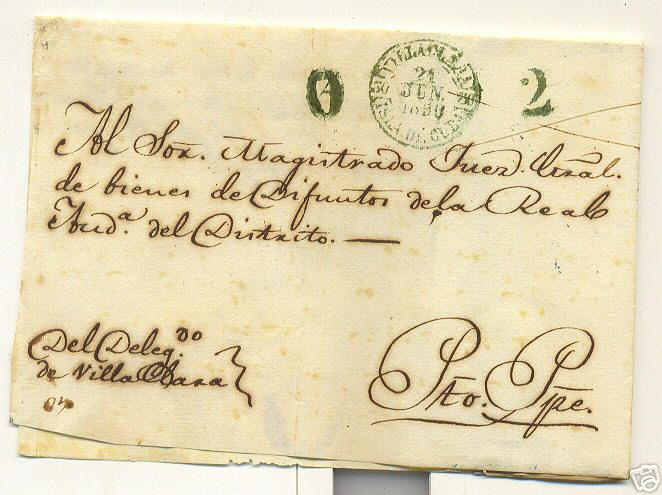 0 2
VILLA CLARA
21
JUN.
1850
ISLA DE CUBA
Al Sor. Magistrado Juez Gral.
de bienes de Difuntos de la Real
Aud.a del Distrito. —
Del Deleg.do
de Villa Clara
Pto. Ppe.